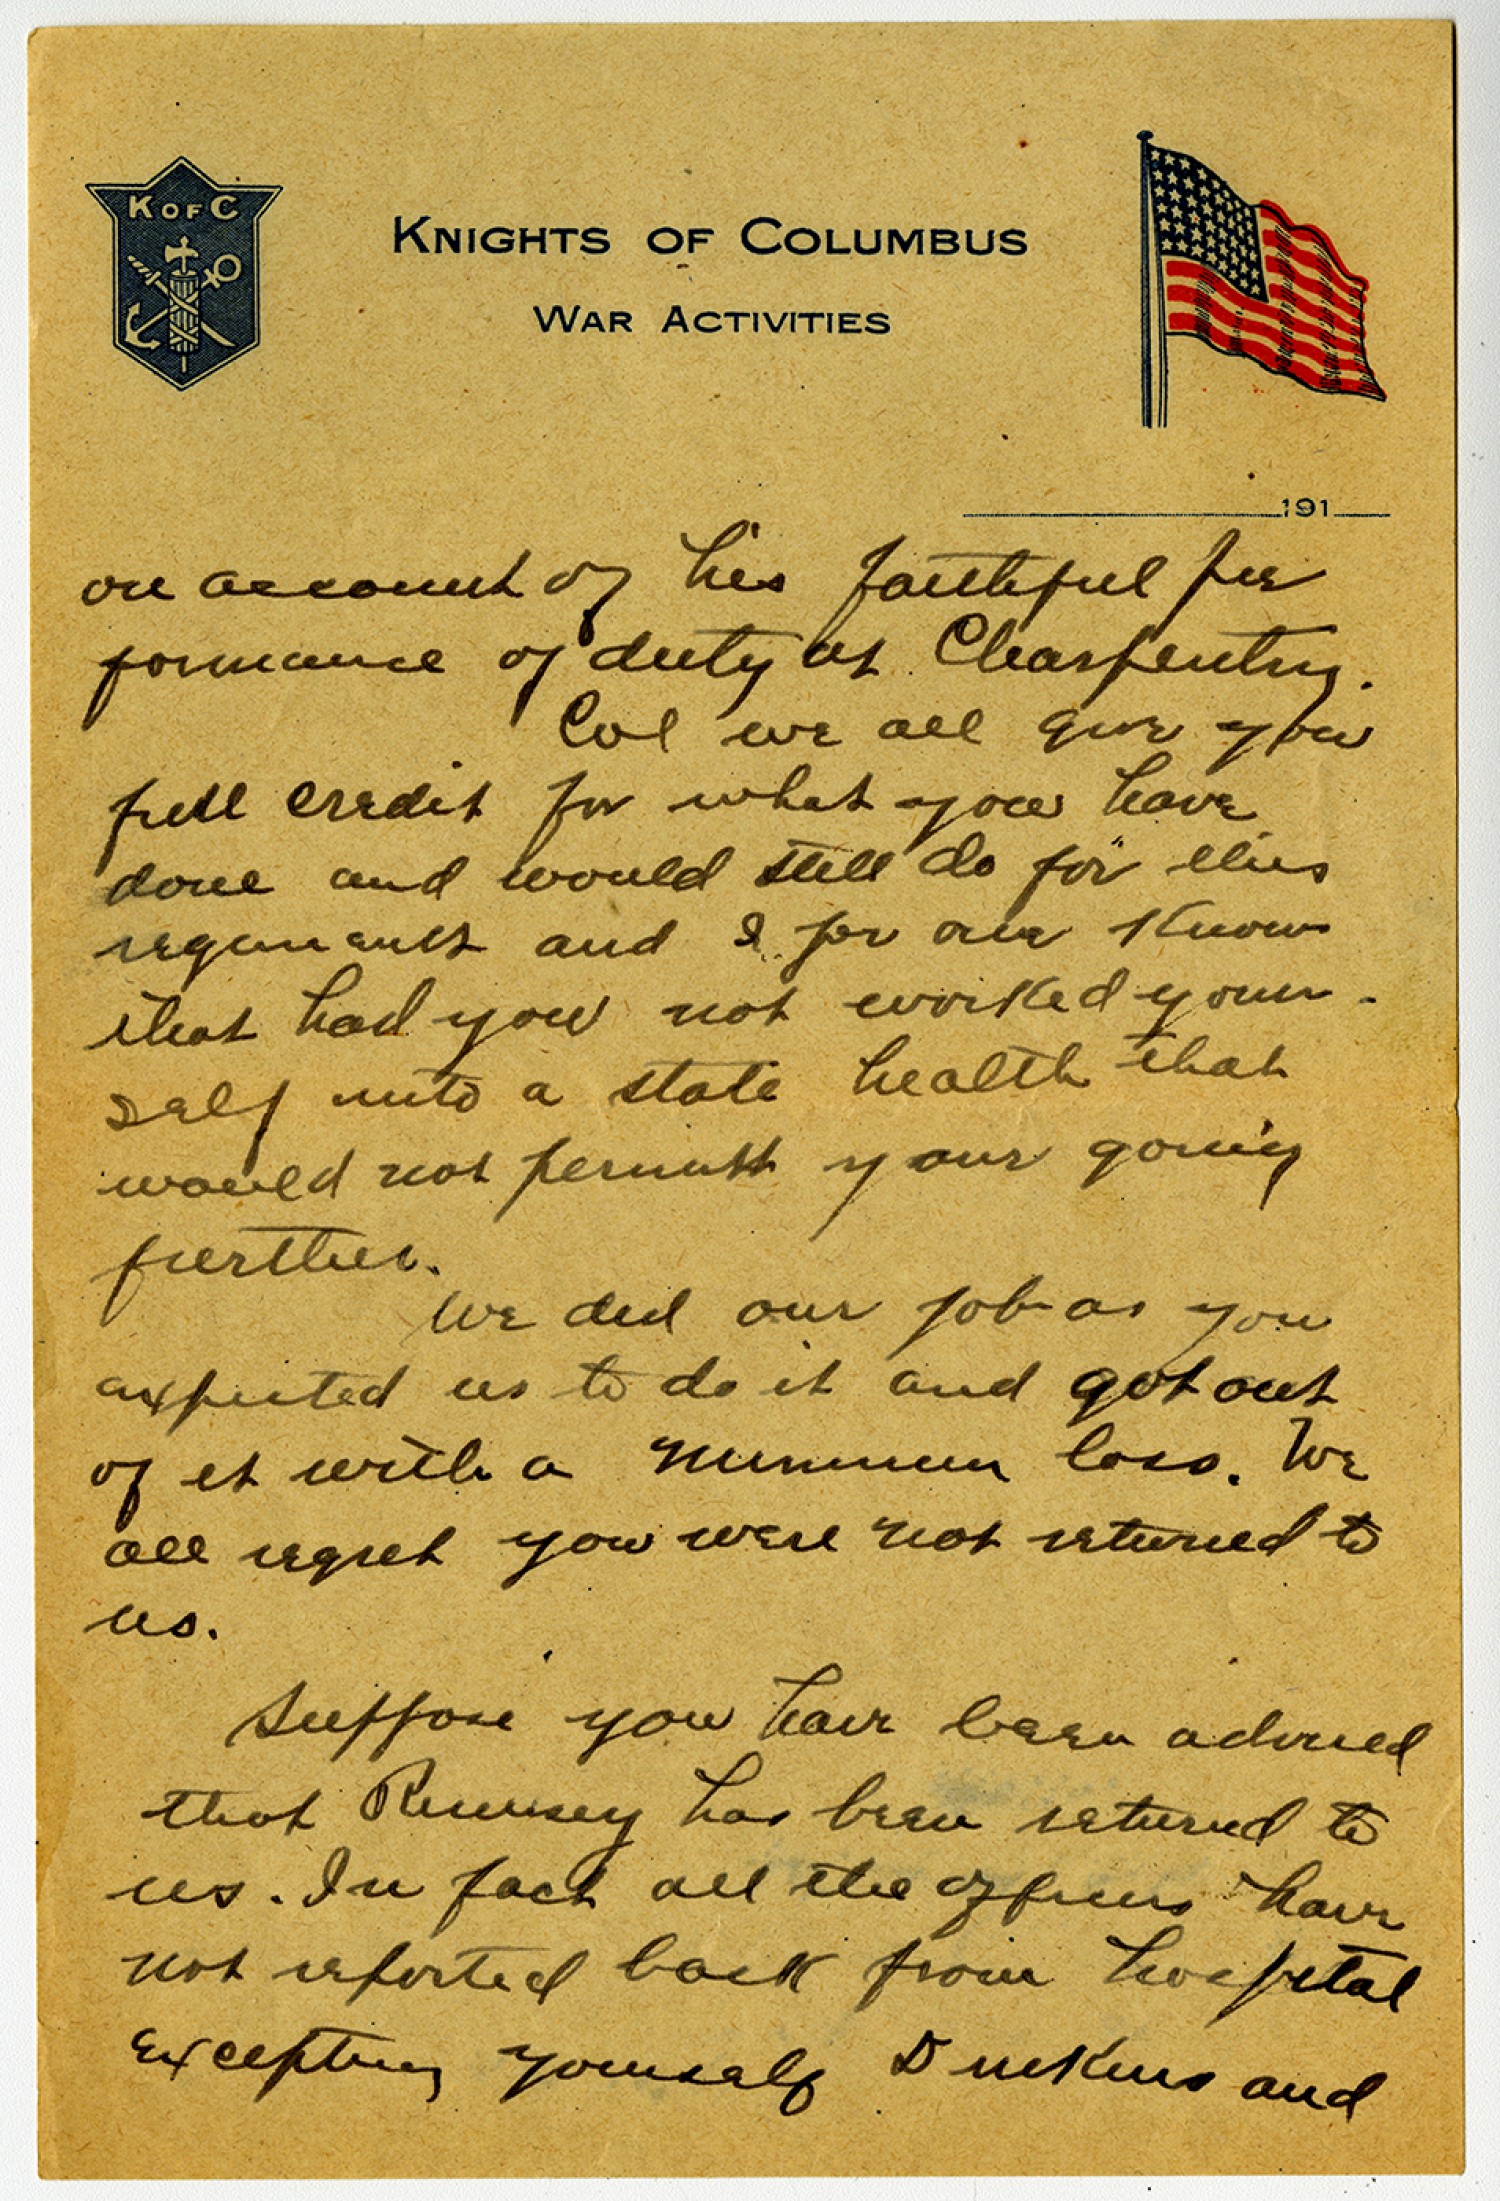 K OF C
KNIGHTS OF COLUMBUS
WAR ACTIVITIES
191
on account of his faithful per
formance of duty at Charpentry.
Col we all give you
full credit for what you have
done and would still do for this
regiment and I for one know
that had you not worked your-
self into a state health that
would not permitt your going
further.
We did our job as you
expected us to do it and got out
of it with a minimum loss. We
all regret you were not returned to
us.
Suppose you have been advised
that Rumsey has been returned to
us. In fact all the officers have
not reported back from hospital
excepting yourself Dunkins and